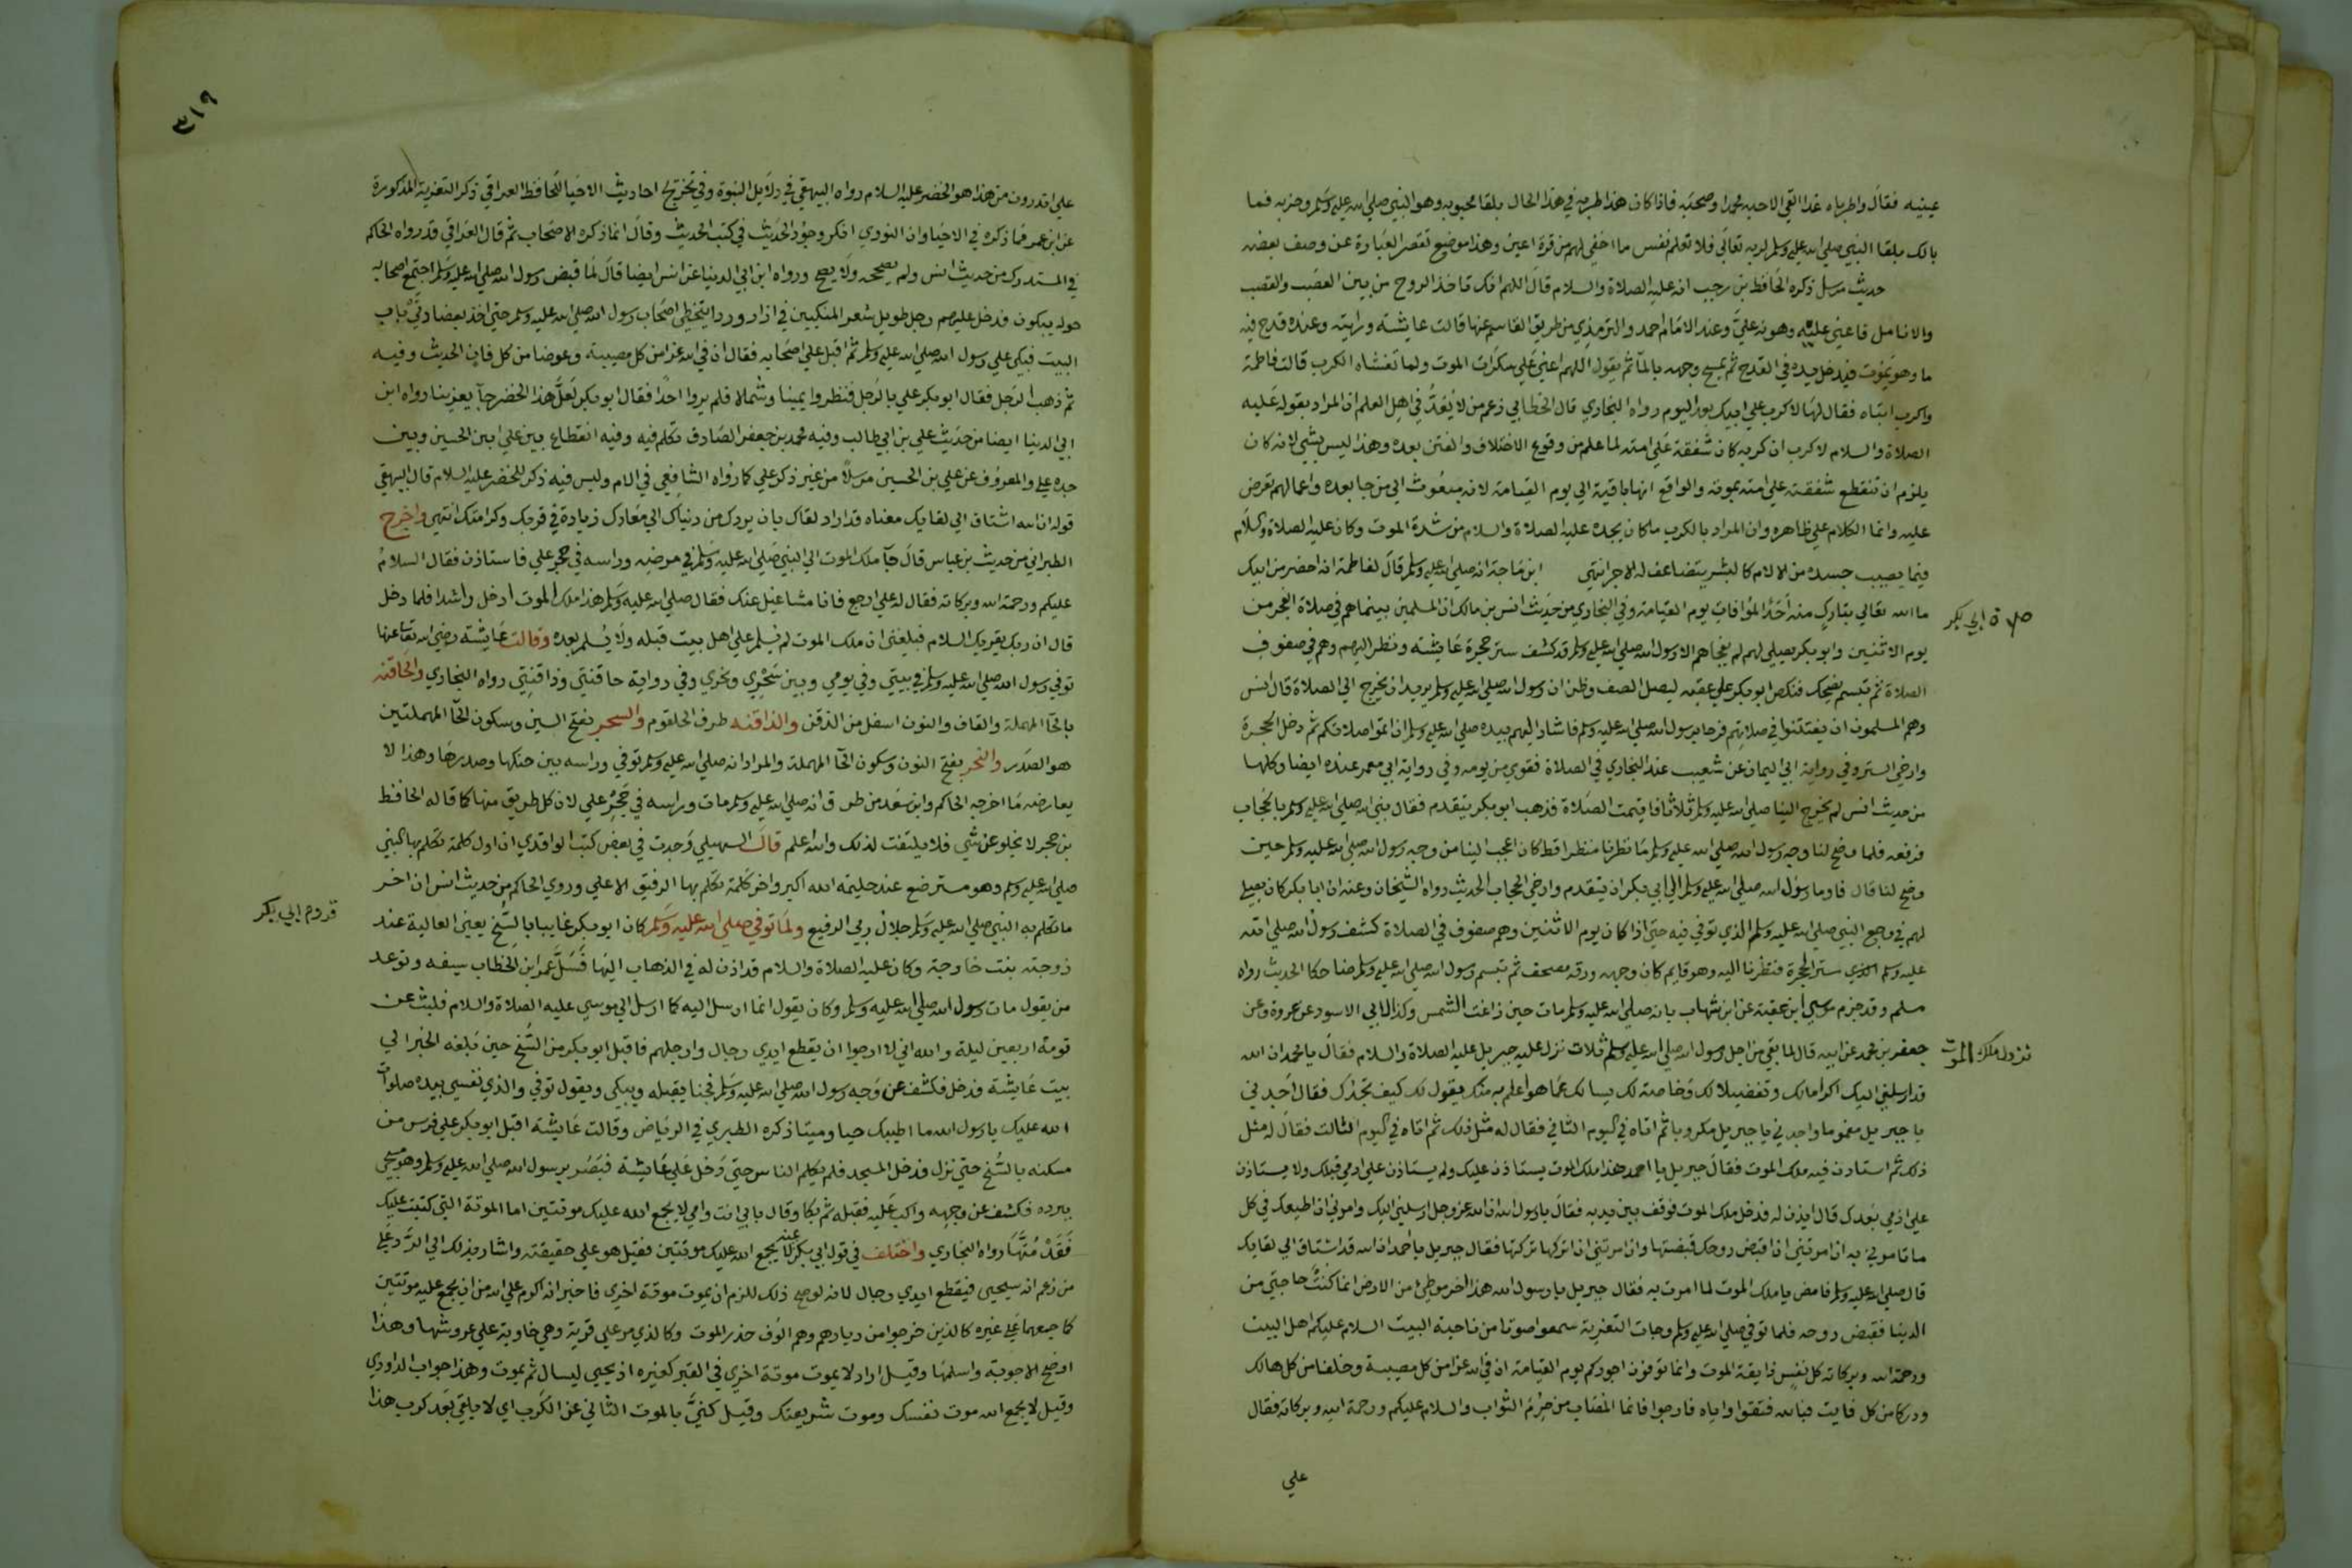 عينيه فقال واطرباه غدا القي الاحبه محمدا وصحبه فاذا كان هذا طربه في هذا الحال بلقا محبوبه وهو النبي صلي الله عليه وسلم وحزبه فما
بالك بلقا النبي صلي الله عليه وسلم لربه تعالي فلا تعلم نفس ما اخفي لهم من قرة اعين وهذا موضع تقصر العبارة عن وصف بعضه
حديث مرسل ذكره الحافظ بن رجب انه عليه الصلاة والسلام قال اللهم انك تاخذ الروح من بين العصب والقصب
والانامل فاعني عليه وهونه علي وعند الامام احمد والترمذي من طريق القاسم عنها قالت عايشة ورايته وعنده قدح فيه
ما وهو يموت فيدخل يده في القدح ثم يمسح وجهه بالمآ ثم يقول اللهم اعني علي سكرات الموت ولما تغشاه الكرب قالت فاطمة
واكرب ابتاه فقال لها لا كرب علي ابيك بعد اليوم رواه البخاري قال الخطابي زعم من لا يعد في اهل العلم ان المراد بقوله عليه
الصلاة والسلام لا كرب ان كربه كان شفقة علي امته لما علم من وقوع الاختلاف والفتن بعده وهذا ليس بشي لانه كان
يلزم ان تنقطع شفقته علي امته بموته والواقع انها باقية الي يوم القيامة لانه مبعوث الي من جا بعده واعمالهم تعرض
عليه وانما الكلام علي ظاهره وان المراد بالكرب ما كان يجده عليه الصلاة والسلام من شدة الموت وكان عليه الصلاة والسلام
فيما يصيب جسده من الالام كالبشر يتضاعف له الاجر انتهي ابن ماجة انه صلي الله عليه وسلم قال لفاطمة انه حضر من ابيك
ما الله تعالي بتارك منه احدا لموافات يوم القيامة وفي البخاري من حديث انس بن مالك ان المسلمين بينما هم في صلاة الفجر من
صلاة ابي بكر
يوم الاثنين وابو بكر يصلي لهم لم يفجاهم الا رسول الله صلي الله عليه وسلم قد كشف ستر حجرة عايشة ونظر اليهم وهم في صفوف
الصلاة ثم تبسم يضحك فنكص ابو بكر علي عقبه ليصل الصف وظن ان رسول الله صلي الله عليه وسلم يريد ان يخرج الي الصلاة قال انس
وهم المسلمون ان يفتتنوا في صلاتهم فرحا برسول الله صلي الله عليه وسلم فاشار اليهم بيده صلي الله عليه وسلم ان اتموا صلاتكم ثم دخل الحجرة
وارخي الستر وفي رواية ابي اليمان عن شعيب عند البخاري في الصلاة فتوفي من يومه وفي رواية ابي معمر عنده ايضا وكلها
من حديث انس لم يخرج الينا صلي الله عليه وسلم ثلاثا فاقيمت الصلاة فذهب ابو بكر يتقدم فقال نبي الله صلي الله عليه وسلم بالحجاب
فرفعه فلما وضح لنا وجه رسول الله صلي الله عليه وسلم ما نظرنا منظرا قط كان اعجب الينا من وجه رسول الله صلي الله عليه وسلم حين
وضح لنا قال فاوما رسول الله صلي الله عليه وسلم الي ابي بكر ان يتقدم وارخي الحجاب الحديث رواه الشيخان وعنه ان ابا بكر كان يصلي
لهم في وجع النبي صلي الله عليه وسلم الذي توفي فيه حتي اذا كان يوم الاثنين وهم صفوف في الصلاة كشف رسول الله صلي الله
عليه وسلم ستر الحجرة فنظرنا اليه وهو قايم كان وجهه ورقة مصحف ثم تبسم رسول الله صلي الله عليه وسلم ضاحكا الحديث رواه
مسلم وقد جزم موسي ابن عقبة عن ابن شهاب بانه صلي الله عليه وسلم مات حين زاغت الشمس وكذا لابي الاسود عن عروة وعن
جعفر بن محمد عن ابيه قال لما بقي من اجل رسول الله صلي الله عليه وسلم ثلاث نزل عليه جبريل عليه الصلاة والسلام فقال يا محمد ان الله
نزول ملك الموت
قد ارسلني اليك اكراما لك وتفضيلا لك وخاصة لك يسالك عما هو اعلم به منك يقول لك كيف تجدك فقال اجدني
يا جبريل مغموما واجدني يا جبريل مكروبا ثم اتاه في اليوم الثاني فقال له مثل ذلك ثم اتاه في اليوم الثالث فقال له مثل
ذلك ثم استاذن فيه ملك الموت فقال جبريل يا احمد هذا ملك الموت يستاذن عليك ولم يستاذن علي ادمي قبلك ولا يستاذن
علي ادمي بعدك قال ايذن له فدخل ملك الموت فوقف بين يديه فقال يا رسول الله ان الله عز وجل ارسلني اليك وامرني ان اطيعك في كل
ما تامرني به ان امرتني ان اقبض روحك قبضتها وان امرتني ان اتركها تركتها فقال جبريل يا احمد ان الله قد اشتاق الي لقايك
قال صلي الله عليه وسلم فامض يا ملك الموت لما امرت به فقال جبريل يا رسول الله هذا اخر موطئ من الارض انما كنت حاجتي من
الدينا فقبض روحه فلما توفي صلي الله عليه وسلم وجات التعزية سمعوا صوتا من ناحية البيت السلام عليكم اهل البيت
ورحمة الله وبركاته كل نفس ذايقة الموت وانما توفون اجوركم يوم القيامة ان في الله عزا من كل مصيبة وخلفا من كل هالك
ودركا من كل فايت فبالله فثقوا واياه فارجوا فانما المصاب من حرم الثواب والسلام عليكم ورحمة الله وبركاته فقال
علي
٣١٩
علي اتدرون من هذا هو الخضر عليه السلام رواه البيهقي في دلايل النبوة وفي تخريج احاديث الاحيا للحافظ العراقي ذكر التعزية المذكورة
عن ابن عمر مما ذكره في الاحيا وان النووي انكر وجود الحديث في كتب الحديث وقال انما ذكره الاصحاب ثم قال العراقي قد رواه الحاكم
في المستدرك من حديث انس ولم يصححه ولا يصح ورواه ابن ابي الدنيا عن انس ايضا قال لما قبض رسول الله صلي الله عليه وسلم اجتمع اصحابه
حوله يبكون فدخل عليهم رجل طويل شعر المنكبين في ازار وردا يتخطي اصحاب رسول الله صلي الله عليه وسلم حتي اخذ بعضادتي باب
البيت فبكي علي رسول الله صلي الله عليه وسلم ثم اقبل علي اصحابه فقال ان في الله عزا من كل مصيبة وعوضا من كل فاين الحديث وفيه
ثم ذهب الرجل فقال ابو بكر علي بالرجل فنظروا يمينا وشمالا فلم يروا احدا فقال ابو بكر لعل هذا الخضر جآ يعزينا رواه ابن
ابي الدنيا ايضا من حديث علي بن ابي طالب وفيه محمد بن جعفر الصادق تكلم فيه وفيه انقطاع بين علي ابن الحسين وبين
جده علي والمعروف عن علي بن الحسين مرسلا من غير ذكر علي كما رواه الشافعي في الام وليس فيه ذكر للخضر عليه السلام قال البيهقي
قوله ان الله اشتاق الي لقايك معناه قد اراد لقاك بان يردك من دنياك الي معادك زيادة في قربك وكرامتك انتهي واخرج
الطبراني من حديث بن عباس قال جآ ملك الموت الي النبي صلي الله عليه وسلم في مرضه وراسه في حجر علي فاستاذن فقال السلام
عليكم ورحمة الله وبركاته فقال له علي ارجع فانا مشاغيل عنك فقال صلي الله عليه وسلم هذا ملك الموت ادخل راشدا فلما دخل
قال ان ربك يقريك السلام فبلغني ان ملك الموت لم يسلم علي اهل بيت قبله ولا يسلم بعده وقالت عايشة رضي الله تعالي عنها
توفي رسول الله صلي الله عليه وسلم في بيتي وفي يومي وبين سحري ونحري وفي رواية حاقنتي وذاقنتي رواه البخاري والحاقنه
بالحآ المهملة والقاف والنون اسفل من الذقن والذاقنه طرف الحلقوم والسحر بفتح السين وسكون الحآ المهملتين
هو الصدر والنحر بفتح النون وسكون الحآ المهملة والمراد انه صلي الله عليه وسلم توفي وراسه بين حنكها وصدرها وهذا لا
يعارضه ما اخرجه الحاكم وابن سعد من طرق انه صلي الله عليه وسلم مات وراسه في حجر علي لان كل طريق منها كما قاله الحافظ
بن حجر لا يخلو عن شي فلا يلتفت لذلك والله اعلم قال السهيلي وجدت في بعض كتب الواقدي ان اول كلمة تكلم بها النبي
صلي الله عليه وسلم وهو مسترضع عند حليمة الله اكبر واخر كلمة تكلم بها الرفيق الاعلي وروي الحاكم من حديث انس ان اخر
ما تكلم به النبي صلي الله عليه وسلم جلال ربي الرفيع ولما توفي صلي الله عليه وسلم كان ابو بكر غايبا بالسنح يعني العالية عند
قدوم ابي بكر
زوجته بنت خارجة وكان عليه الصلاة والسلام قد اذن له في الذهاب اليها فسل عمر ابن الخطاب سيفه وتوعد
من يقول مات رسول الله صلي الله عليه وسلم وكان يقول انما ارسل اليه كما ارسل الي موسي عليه الصلاة والسلام فلبث عن
قومه اربعين ليلة والله اني لارجوا ان يقطع ايدي رجال وارجلهم فاقبل ابو بكر من السنح حين بلغه الخبر الي
بيت عايشة فدخل فكشف عن وجه رسول الله صلي الله عليه وسلم فجثا يقبله ويبكي ويقول توفي والذي نفسي بيده صلوات
الله عليك يا رسول الله ما اطيبك حيا وميتا ذكره الطبري في الرياض وقالت عايشة اقبل ابو بكر علي فرس من
مسكنه بالسنح حتي نزل فدخل المسجد فلم يكلم الناس حتي دخل علي عايشة فبصر برسول الله صلي الله عليه وسلم وهو مسجي
ببرده فكشف عن وجهه واكب عليه فقبله ثم بكا وقال بابي انت وامي لا يجمع الله عليك موتتين اما الموتة التي كتبت عليك
فقد متها رواه البخاري واختلف في قول ابي بكر عنه لا يجمع الله عليك موتتين فقيل هو علي حقيقته واشار بذلك الي الرد علي
من زعم انه سيحيي فيقطع ايدي رجال لانه لو صح ذلك للزم ان يموت موتة اخري فاخبر انه اكرم علي الله من ان يجمع عليه موتتين
كما جمعهما علي غيره كالذين خرجوا من ديارهم وهم الوف حذر الموت وكالذي مر علي قرية وهي خاوية علي عروشها وهذا
اوضح الاجوبة واسلمها وقيل اراد لا يموت موتة اخري في القبر كغيره اذ يحيي ليسال ثم يموت وهذا جواب الداودي
وقيل لا يجمع الله موت نفسك وموت شريعتك وقيل كني بالموت الثاني عن الكرب اي لا يلقي بعد كرب هذا